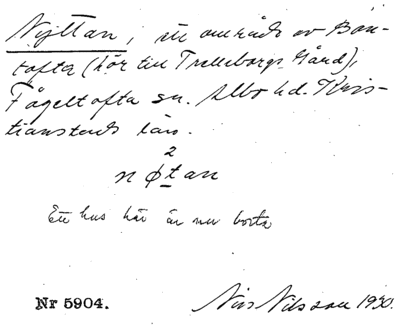 Nyttan, ett område av Bon-
tofta (hör till Trolleborgs Gård),
Fågeltofta sn. Albo hd. Kris-
tianstads län.
2
n ø t an
Ett hus här är nu borta
Nr 5904.
Nils Nilsson 1930.